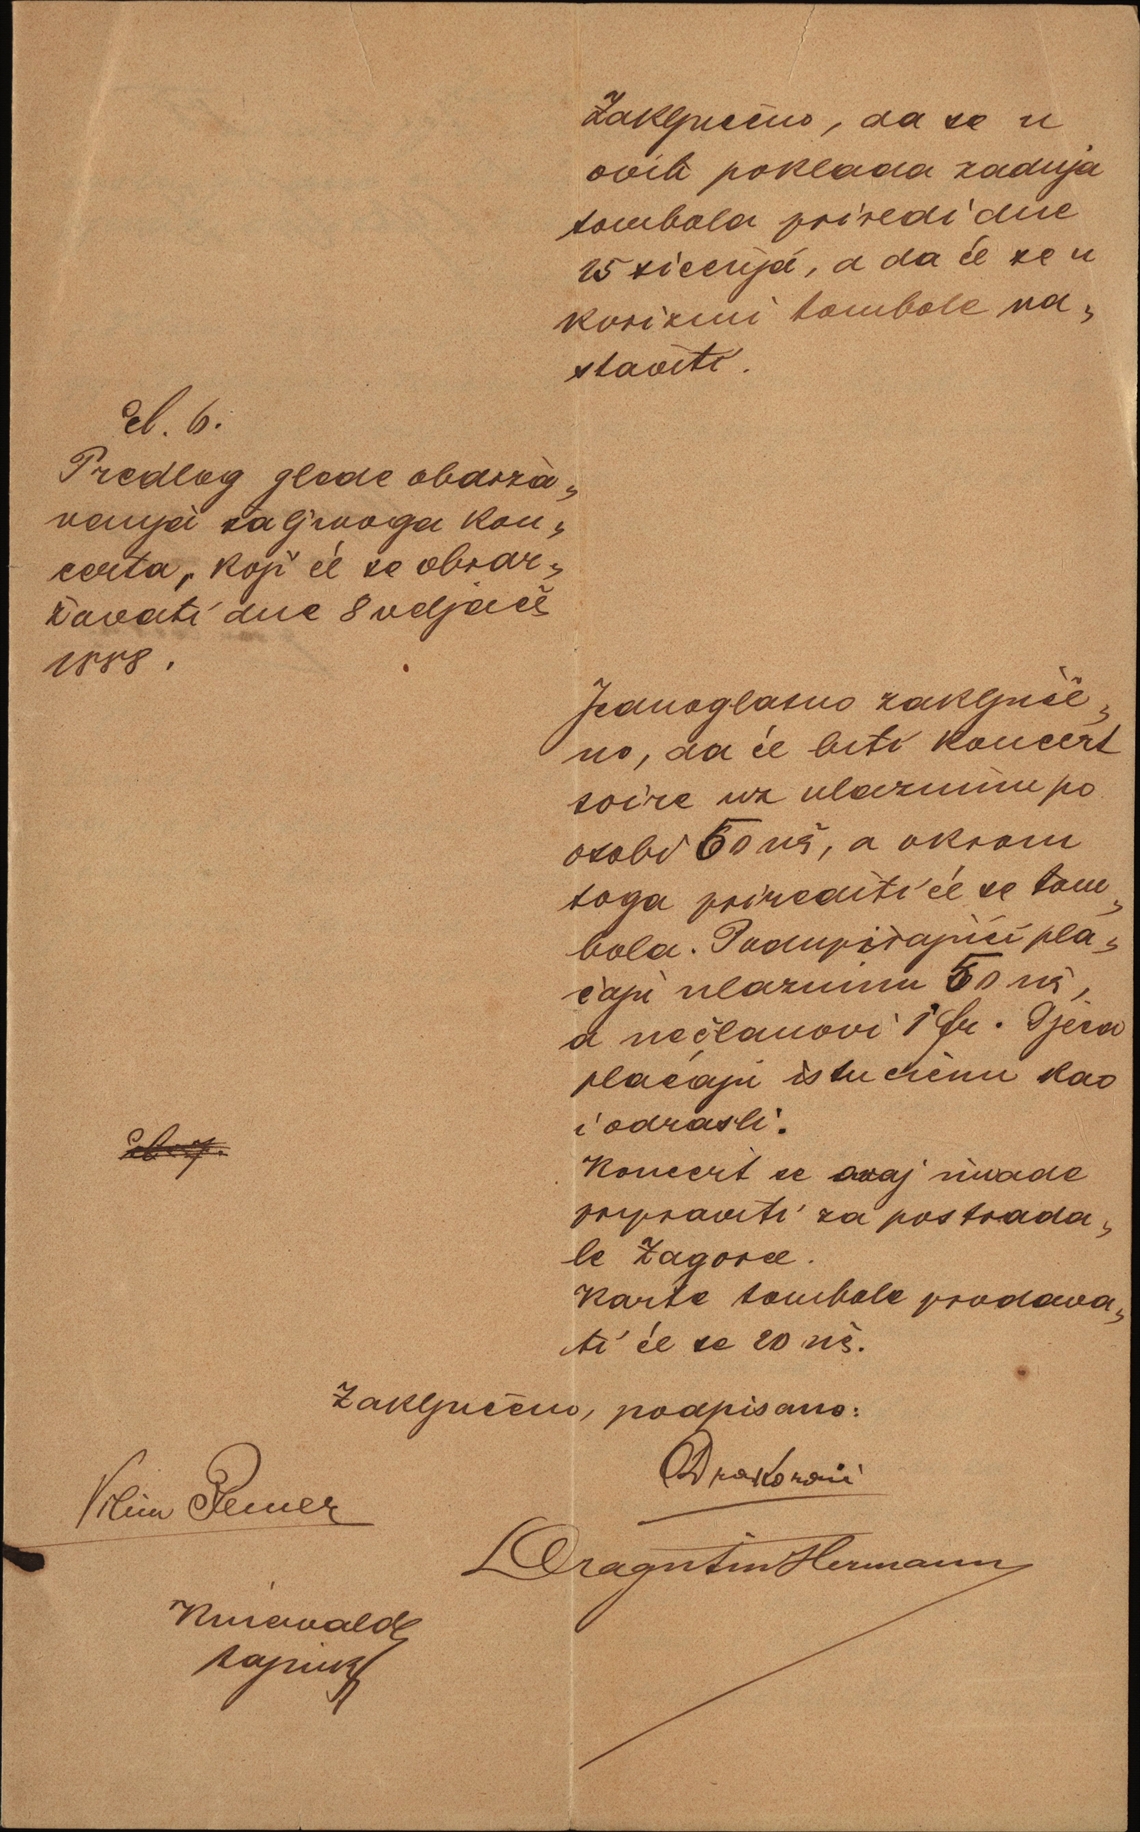 Zaključeno, da se u
ovih poklada zadnja
tombola priredi dne
25 siečnja, a da će se u
korizmi tombole na„
staviti.
čl. 6.
Predlog glede obdrža„
vanja šaljivoga kon„
certa, koji će se obdr„
žavati dne 8 veljače
1888.
Jednoglasno zaključe„
no, da će biti koncert
soire uz ulazninu po
osobi 50 nč, a okrom
toga prirediti će se tom„
bola. Podupirajući pla„
ćaju ulazninu 50 nč,
a nečlanovi 1 fr. Djeca
plaćaju istu cienu kao
i odrasli.
Koncert se ovaj imade
pripraviti za postrada„
le Zagorce.
Karte tombole prodava„
ti će se 20 nč.
Zaključeno, podpisano:
Vilim Pemer
Dragutin Hermann
tajnik